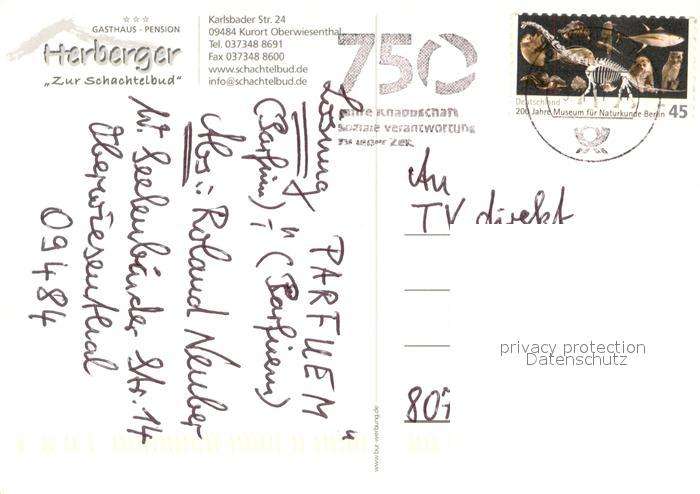 GASTHAUS - PENSION
Herberger
„Zur Schachtelbud“
Karlsbader Str. 24
09484 Kurort Oberwiesenthal
Tel. 037348 8691
Fax 037348 8600
www.schachtelbud.de
info@schachtelbud.de
750
Jahre Knappschaft
Soziale Verantwortung
zu jeder Zeit
Deutschland
200 Jahre Museum für Naturkunde Berlin
45
Lösung "PARFUEM"
(Parfüm); (Parfuem)
Abs.: Roland Neuber
Oberwiesenthal
09484
An
TV direkt
807
privacy protection
Datenschutz
www.bur-werbung.de